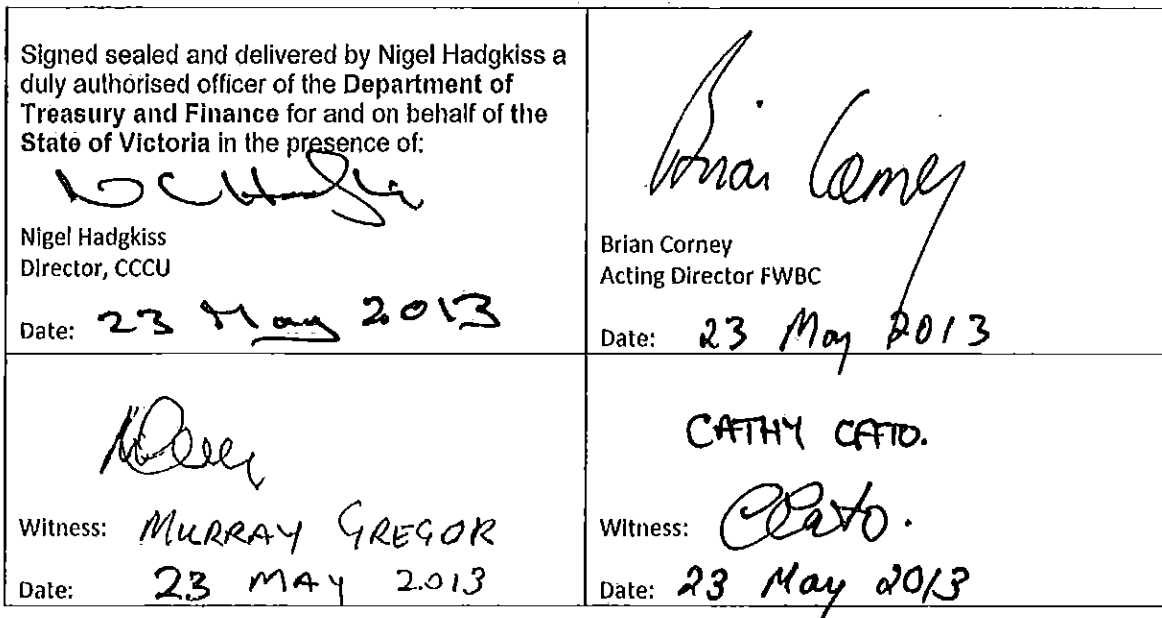 Signed sealed and delivered by Nigel Hadgkiss a
duly authorised officer of the Department of
Treasury and Finance for and on behalf of the
State of Victoria in the presence of:
Nigel Hadgkiss
Director, CCCU
Date: 23 May 2013
Brian Corney
Brian Corney
Acting Director FWBC
Date: 23 May 2013
Witness: MURRAY GREGOR
Date: 23 MAY 2013
CATHY CATO.
Witness: CCato.
Date: 23 May 2013